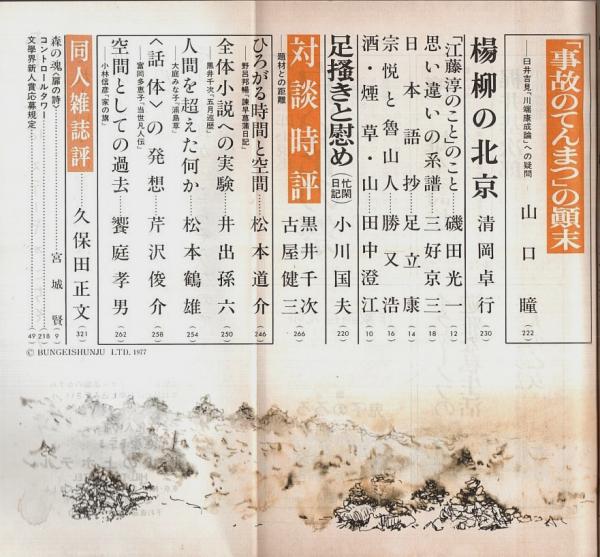 「事故のてんまつ」の顚末
──臼井吉見「川端康成論」への疑問──
山口瞳(222)
楊柳の北京 清岡卓行(230)
「江藤淳のこと」のこと……磯田光一(12)
思い違いの系譜……三好京三(18)
日本語抄……足立康(14)
宗悦と魯山人……勝又浩(16)
酒・煙草・山……田中澄江(10)
足搔きと慰め(忙閑日記) 小川国夫(220)
対談時評 黒井千次 古屋健三(266)
題材との距離
ひろがる時間と空間……松本道介(246)
野呂邦暢「諫早菖蒲日記」
全体小説への実験……井出孫六(250)
黒井千次「五月巡歴」
人間を超えた何か……松本鶴雄(254)
大庭みな子「浦島草」
〈話体〉の発想……芹沢俊介(258)
富岡多恵子「当世凡人伝」
空間としての過去……饗庭孝男(262)
小林信彦「家の旗」
同人雑誌評……久保田正文(321)
森の魂〈扉の詩〉……宮城賢(9)
コントロールタワー……(218)
文學界新人賞応募規定……(49)
© BUNGEISHUNJU LTD. 1977